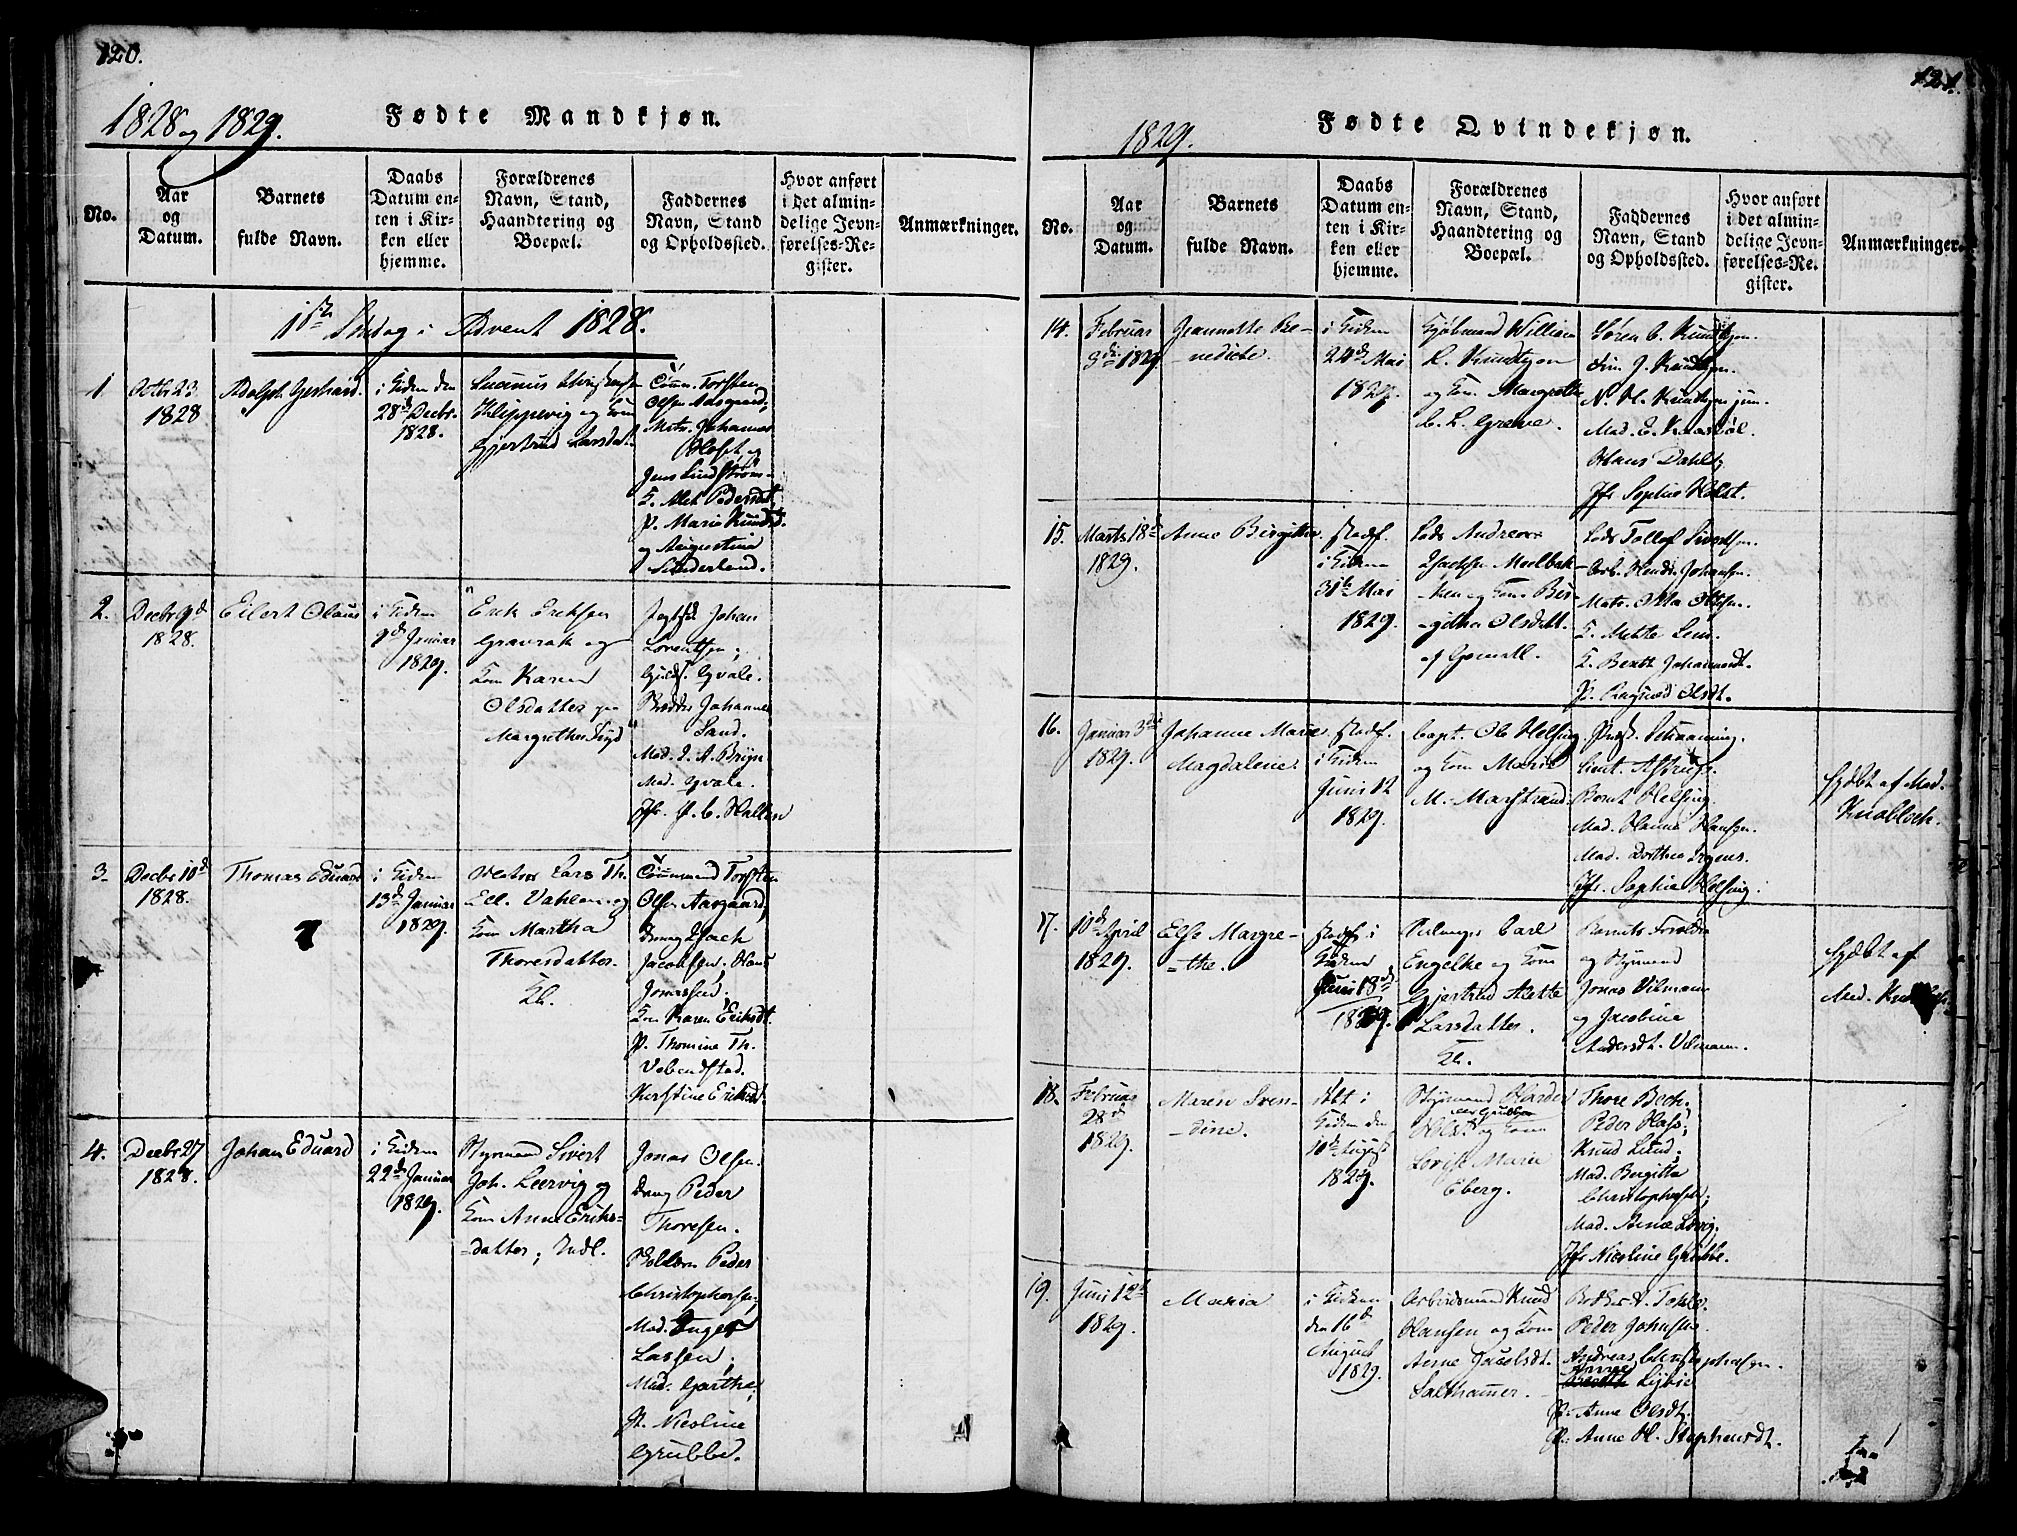 120.
1828 og 1829.
Fødte Mandkjøn.
No.
Aar
og
Datum.
Barnets
fulde Navn.
Daabs
Datum en-
ten i Kir-
ken eller
hjemme.
Forældrenes
Navn, Stand,
Haandtering og
Boepæl.
Faddernes
Navn, Stand
og Opholdssted.
Hvor anført
i det almin-
delige Jevn-
førelses-Re-
gister.
Anmærkninger.
1ste Søndag i Advent 1828.
1
Octbr 23
1828
Adolph Gerhard.
i Kirken den
28de Decbr.
1828.
Christensen
Klippevig og Kone
Gjertrud Larsdat.
Torsten
Olsen Aasgaard,
Matr. Johannes
Holset og
Jens Lundstrøm
K. Alet Pedersdat
P. Marie Knudsd.
og Augustina
Sünderland.
2.
Decbr 9d
1828.
Eilert Olaus
i Kirken
9de Januar
1829.
Erik Eriksen
Gravrak og
Kone Karen
Olsdatter
Johan
Lorentsen;
Gvale.
Johannes
Sand.
Mad. I. A. Bryn
Mad. Gvale.
Jfr. P. C. Hallen
3.
Decbr 10d
1828.
Thomas Eduard
i Kirken
13de Januar
1829.
Matros Lars Th.
Ell. Vahlen og
Kone Martha
Thoresdatter.
Kl.
Torsten
Olsen Aasgaard,
Dreng Isach
Jacobsen, Hans
Jonassen,
Kone Karen Eriksdt.
P. Thomine Th.
Vebendstad.
Kerstine Eriksdt.
4.
Decbr 27
1828.
Johan Eduard
i Kirken
22de Januar
1829.
Styrmand Sivert
Joh. Leervig og
Kone Anne Eriks-
-datter; Indl.
Jonas Olsen.
Dreng Peder
Thoresen.
Peder
Christophersen,
Mad. Inger
Lassen.
Mad. Garthe,
P. Nicoline
Grubbe.
121.
1829.
Fødte Qvindekjøn.
No.
Aar
og
Datum.
Barnets
fulde Navn.
Daabs
Datum en-
ten i Kir-
ken eller
hjemme.
Forældrenes
Navn, Stand,
Haandtering og
Boepæl.
Faddernes
Navn, Stand
og Opholdssted.
Hvor anført
i det almin-
delige Jevn-
førelses-Re-
gister.
Anmærkninger.
14.
Februar
9de 1829
Jeannette Be-
-nedicte.
i Kirken
24de Mai
1829.
Kjøbmand William
L. Knudtzon
og Kone Margrethe
C. L. Greve.
Søren C. Knudtzon.
J. Knudtzon.
N. H. Knudtzon jun.
Mad. E. Kaasbøl.
Hans Dahl;
Jfr Sophie Holst.
15.
Marts 18d
1829.
Anne Birgitta
i Kirken
31te Mai
1829.
Lods Andreas
Isachsen Moelbak-
-ken og Kone Bir-
-githa Olsdatt.
Lods Tollef Sivertsen.
Arb. Hendr. Johansen.
Matr. Olsen.
K. Mette Lem.
K. Berit Johannesdt.
P. Ragnild Olsdt.
16.
Januar 3die
1829.
Johanne Marie
Magdalene.
i Kirken
Junii 12
1829.
Capt. Ole Helsing
og Kone Marie
M. Marstrand.
Schaaning.
Lieut. Astrup.
Bernt Helsing.
Mad. Hanna Hansen.
Mad. Dorthea Irgens.
Jfr. Sophie Helsing.
hjdøbt af Mad.
Knobloch.
17.
10de April
1829.
Else Margre-
-the.
stadf. i
Kirken
Junii 18de
1829.
Carl
Engelke og Kone
Gjertrud Alette
Larsdatter.
Kl.
Barnets Forældre
og Styrmand
Jonas Vilmann
og Jacobine
Andersdt. Vilmann.
hjdøbt af
Mad.
18.
Februar
28d
1829.
Maren Sven-
-dine.
i
Kirken den
10de August
1829.
Styrmand
Holst og Kone
Lovise Marie
Eberg.
Thore Bech.
Peder Hass;
Knud Lund.
Mad. Bergitta
Christophersen;
Mad.
Jfr Nicoline Grubbe.
19.
Junii 12d
1829.
Maria
i Kirken
den 16de
August
1829.
Arbeidsmand Knud
Hansen og Kone
Anne Jacobsdt.
Salthamer.
Peder Johnsen
Andreas Christophersen.
Anne
P. Anne Olsdt.
P. Anne H. Stephensdt.